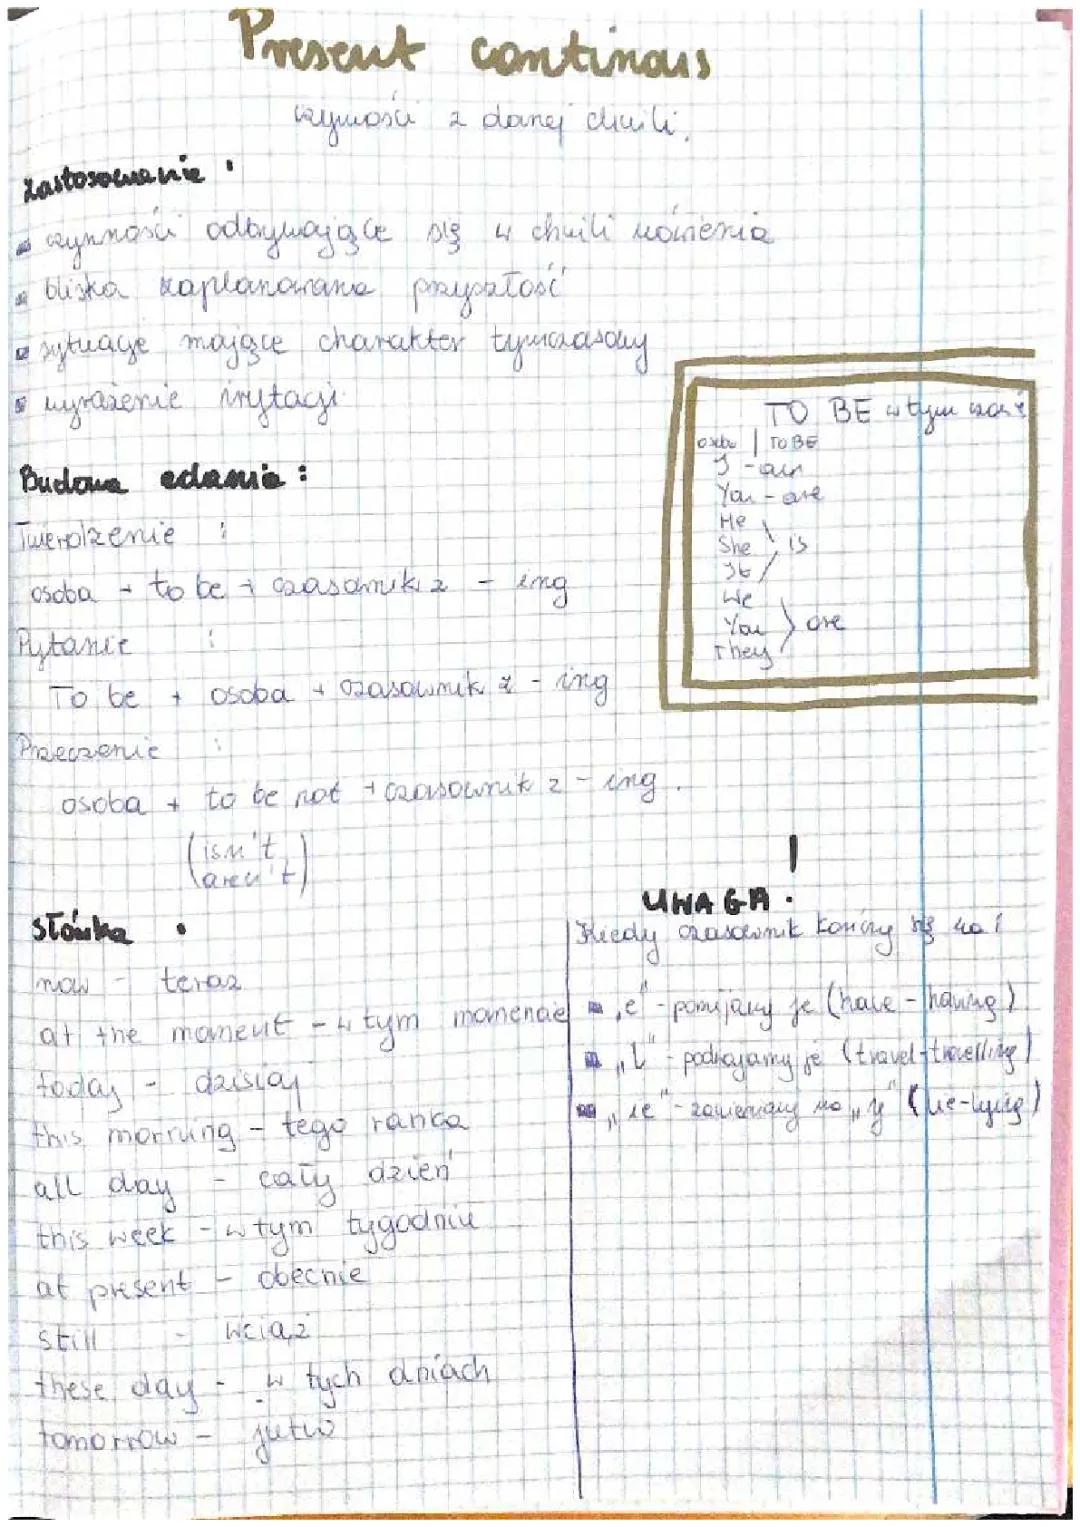 Present continous
czynności z danej chwili.
zastosowanie :
czynności odbywające się w chwili mówienia
bliska zaplanowana przyszłość
sytuacje mające charakter tymczasowy
wyrażenie irytacji
TO BE w tym czasie
osoba | TO BE
I - am
You - are
He
She } is
It
We
You } are
They
Budowa zdania :
Twierdzenie :
osoba + to be + czasownik z - ing
Pytanie :
To be + osoba + czasownik z - ing
Przeczenie :
osoba + to be not + czasownik z - ing.
(isn't
aren't)
słówka :
now - teraz
at the moment - w tym momencie
today - dzisiaj
this morning - tego ranka
all day - cały dzień
this week - w tym tygodniu
at present - obecnie
still - wciąż
these day - w tych dniach
tomorrow - jutro
UWAGA !
Kiedy czasownik kończy się na :
„e" - pomijamy je (have - having)
„l" - podwajamy je (travel - travelling)
„ie" - zamieniamy na „y" (lie - lying)